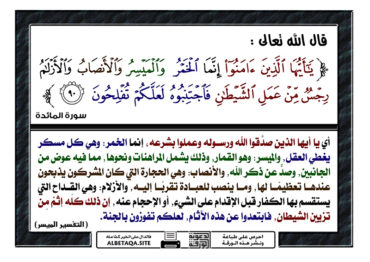 قال الله تعالى :
﴿ يَٰٓأَيُّهَا ٱلَّذِينَ ءَامَنُوٓا۟ إِنَّمَا ٱلْخَمْرُ وَٱلْمَيْسِرُ وَٱلْأَنصَابُ وَٱلْأَزْلَٰمُ
رِجْسٌ مِّنْ عَمَلِ ٱلشَّيْطَٰنِ فَٱجْتَنِبُوهُ لَعَلَّكُمْ تُفْلِحُونَ ٩٠ ﴾
سورة المائدة
أي يا أيها الذين صدَّقوا الله ورسوله وعملوا بشرعه، إنما الخمر: وهي كل مسكر
يغطي العقل، والميسر: وهو القمار، وذلك يشمل المراهنات ونحوها، مما فيه عوض من
الجانبين، وصدٌّ عن ذكر الله، والأنصاب: وهي الحجارة التي كان المشركون يذبحون
عندها تعظيمًا لها، وما ينصب للعبادة تقربًا إليه، والأزلام: وهي القداح التي
يستقسم بها الكفار قبل الإقدام على الشيء، أو الإحجام عنه، إن ذلك كله إثمٌ من
تزيين الشيطان، فابتعدوا عن هذه الآثام، لعلكم تفوزون بالجنة.
( التفسير الميسر )
احرص على طباعة
ونشر هذه الورقة
ALBETAQA.SITE